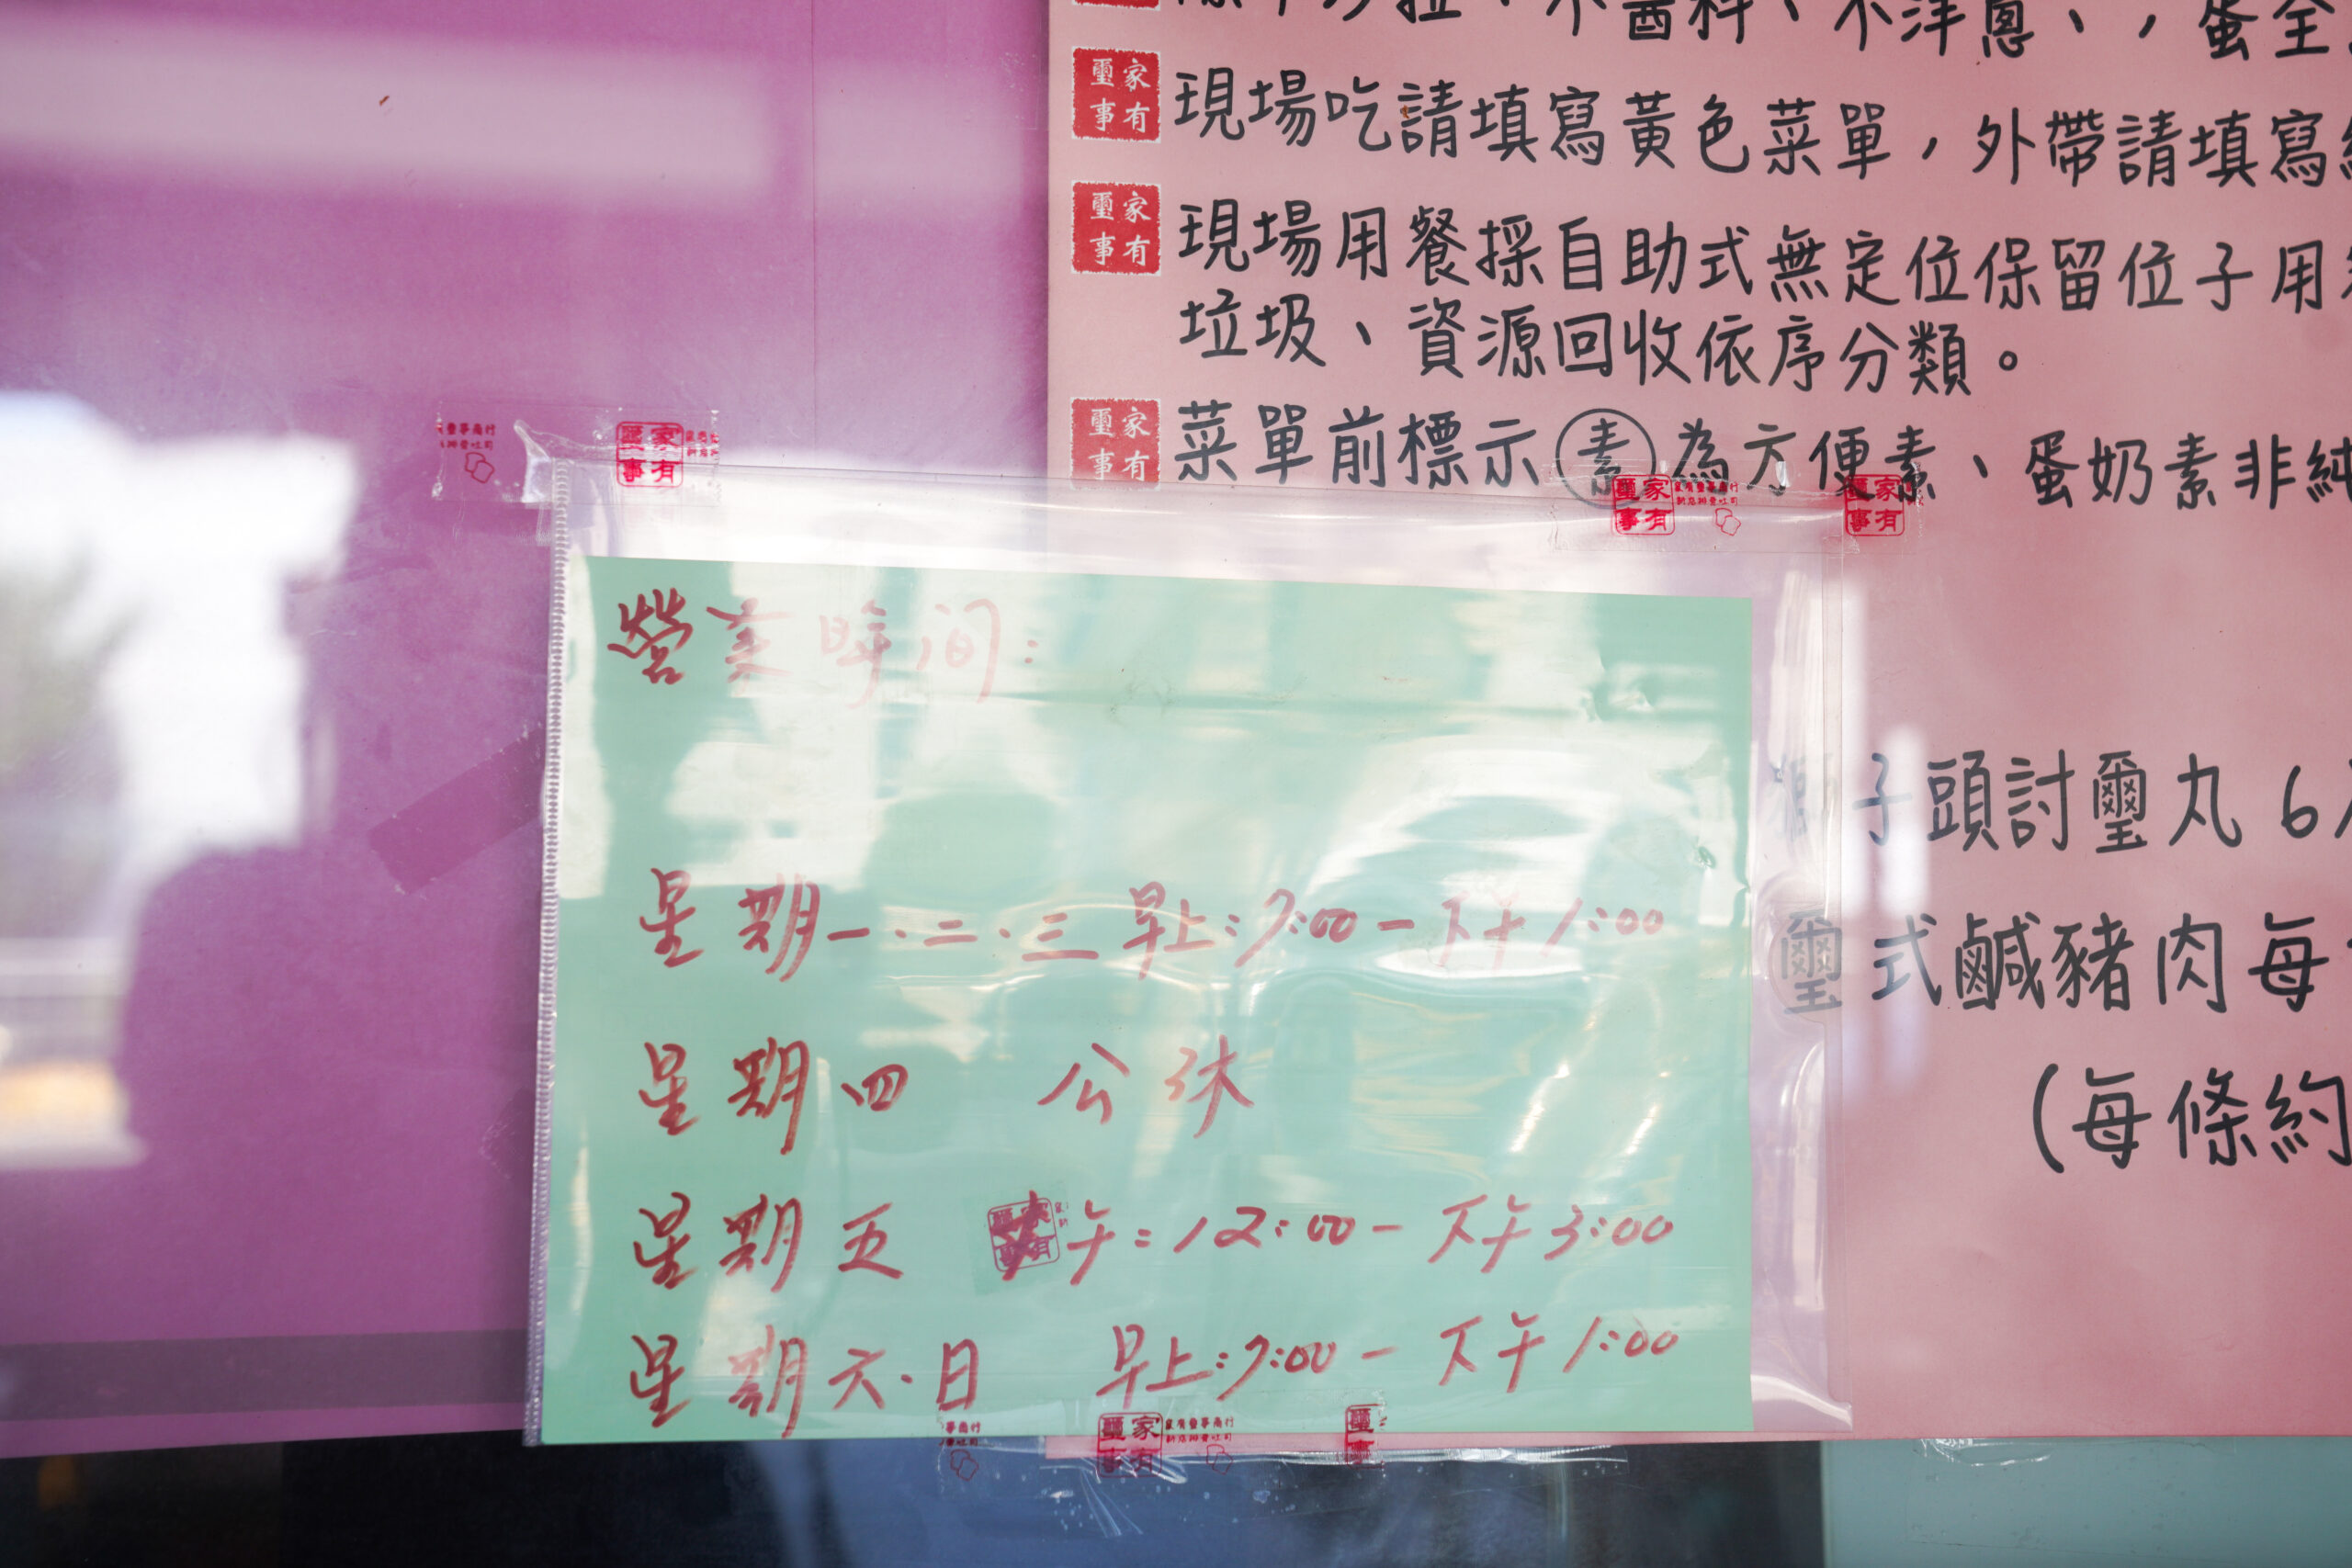 不醬料、不洋蔥、,蛋全
家有璽事
現場吃請填寫黃色菜單,外帶請填寫
家有璽事
現場用餐採自助式無定位保留位子用
垃圾、資源回收依序分類。
家有璽事
菜單前標示素為方便素、蛋奶素非純
家有璽事
家有璽事
家有璽事
營業時间:
星期一.二.三 早上:7:00-下午1:00
星期四 公休
星期五 午:12:00-下午3:00
星期六.日 早上:7:00-下午1:00
子頭討璽丸6
璽式鹹豬肉每
(每條約
家有璽事